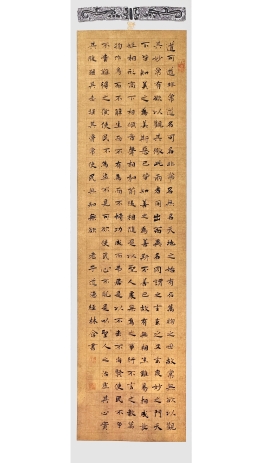 道可道非常道名可名非常名無名天地之始有名萬物之母故常無欲以觀
其妙常有欲以觀其徼此兩者同出而異名同謂之玄玄之又玄衆妙之門天
下皆知美之為美斯惡已皆知善之為善斯不善已故有無相生難易相成長
短相形高下相傾音聲相和前後相隨是以聖人處無為之事行不言之教萬
物作焉而不辭生而不有為而不恃功成而弗居是以不去不尚賢使民不爭
不貴難得之貨使民不為盜不見可欲使民心不亂是以聖人之治虛其心實
其腹弱其志強其骨常使民無知無欲 老子道德經 林 書